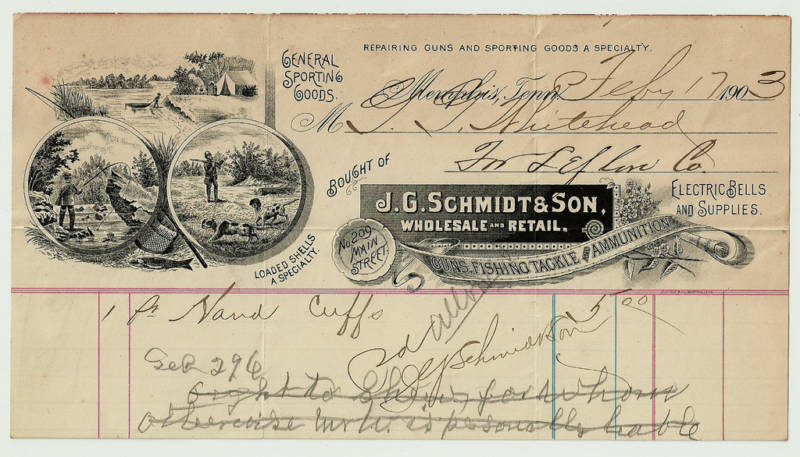 REPAIRING GUNS AND SPORTING GOODS A SPECIALTY.
GENERAL
SPORTING
GOODS.
Memphis, Tenn, Feby 17 1903
M J. J. Whitehead
For Leflore Co.
BOUGHT OF
J. G. SCHMIDT & SON,
WHOLESALE AND RETAIL.
ELECTRIC BELLS
AND SUPPLIES.
No. 209
MAIN
STREET.
GUNS, FISHING TACKLE AND AMMUNITION
LOADED SHELLS
A SPECIALTY.
1 Pr Hand Cuffs 5 00
Pd
J G Schmidt & Son
296
ought to show for whom
otherwise is personally liable